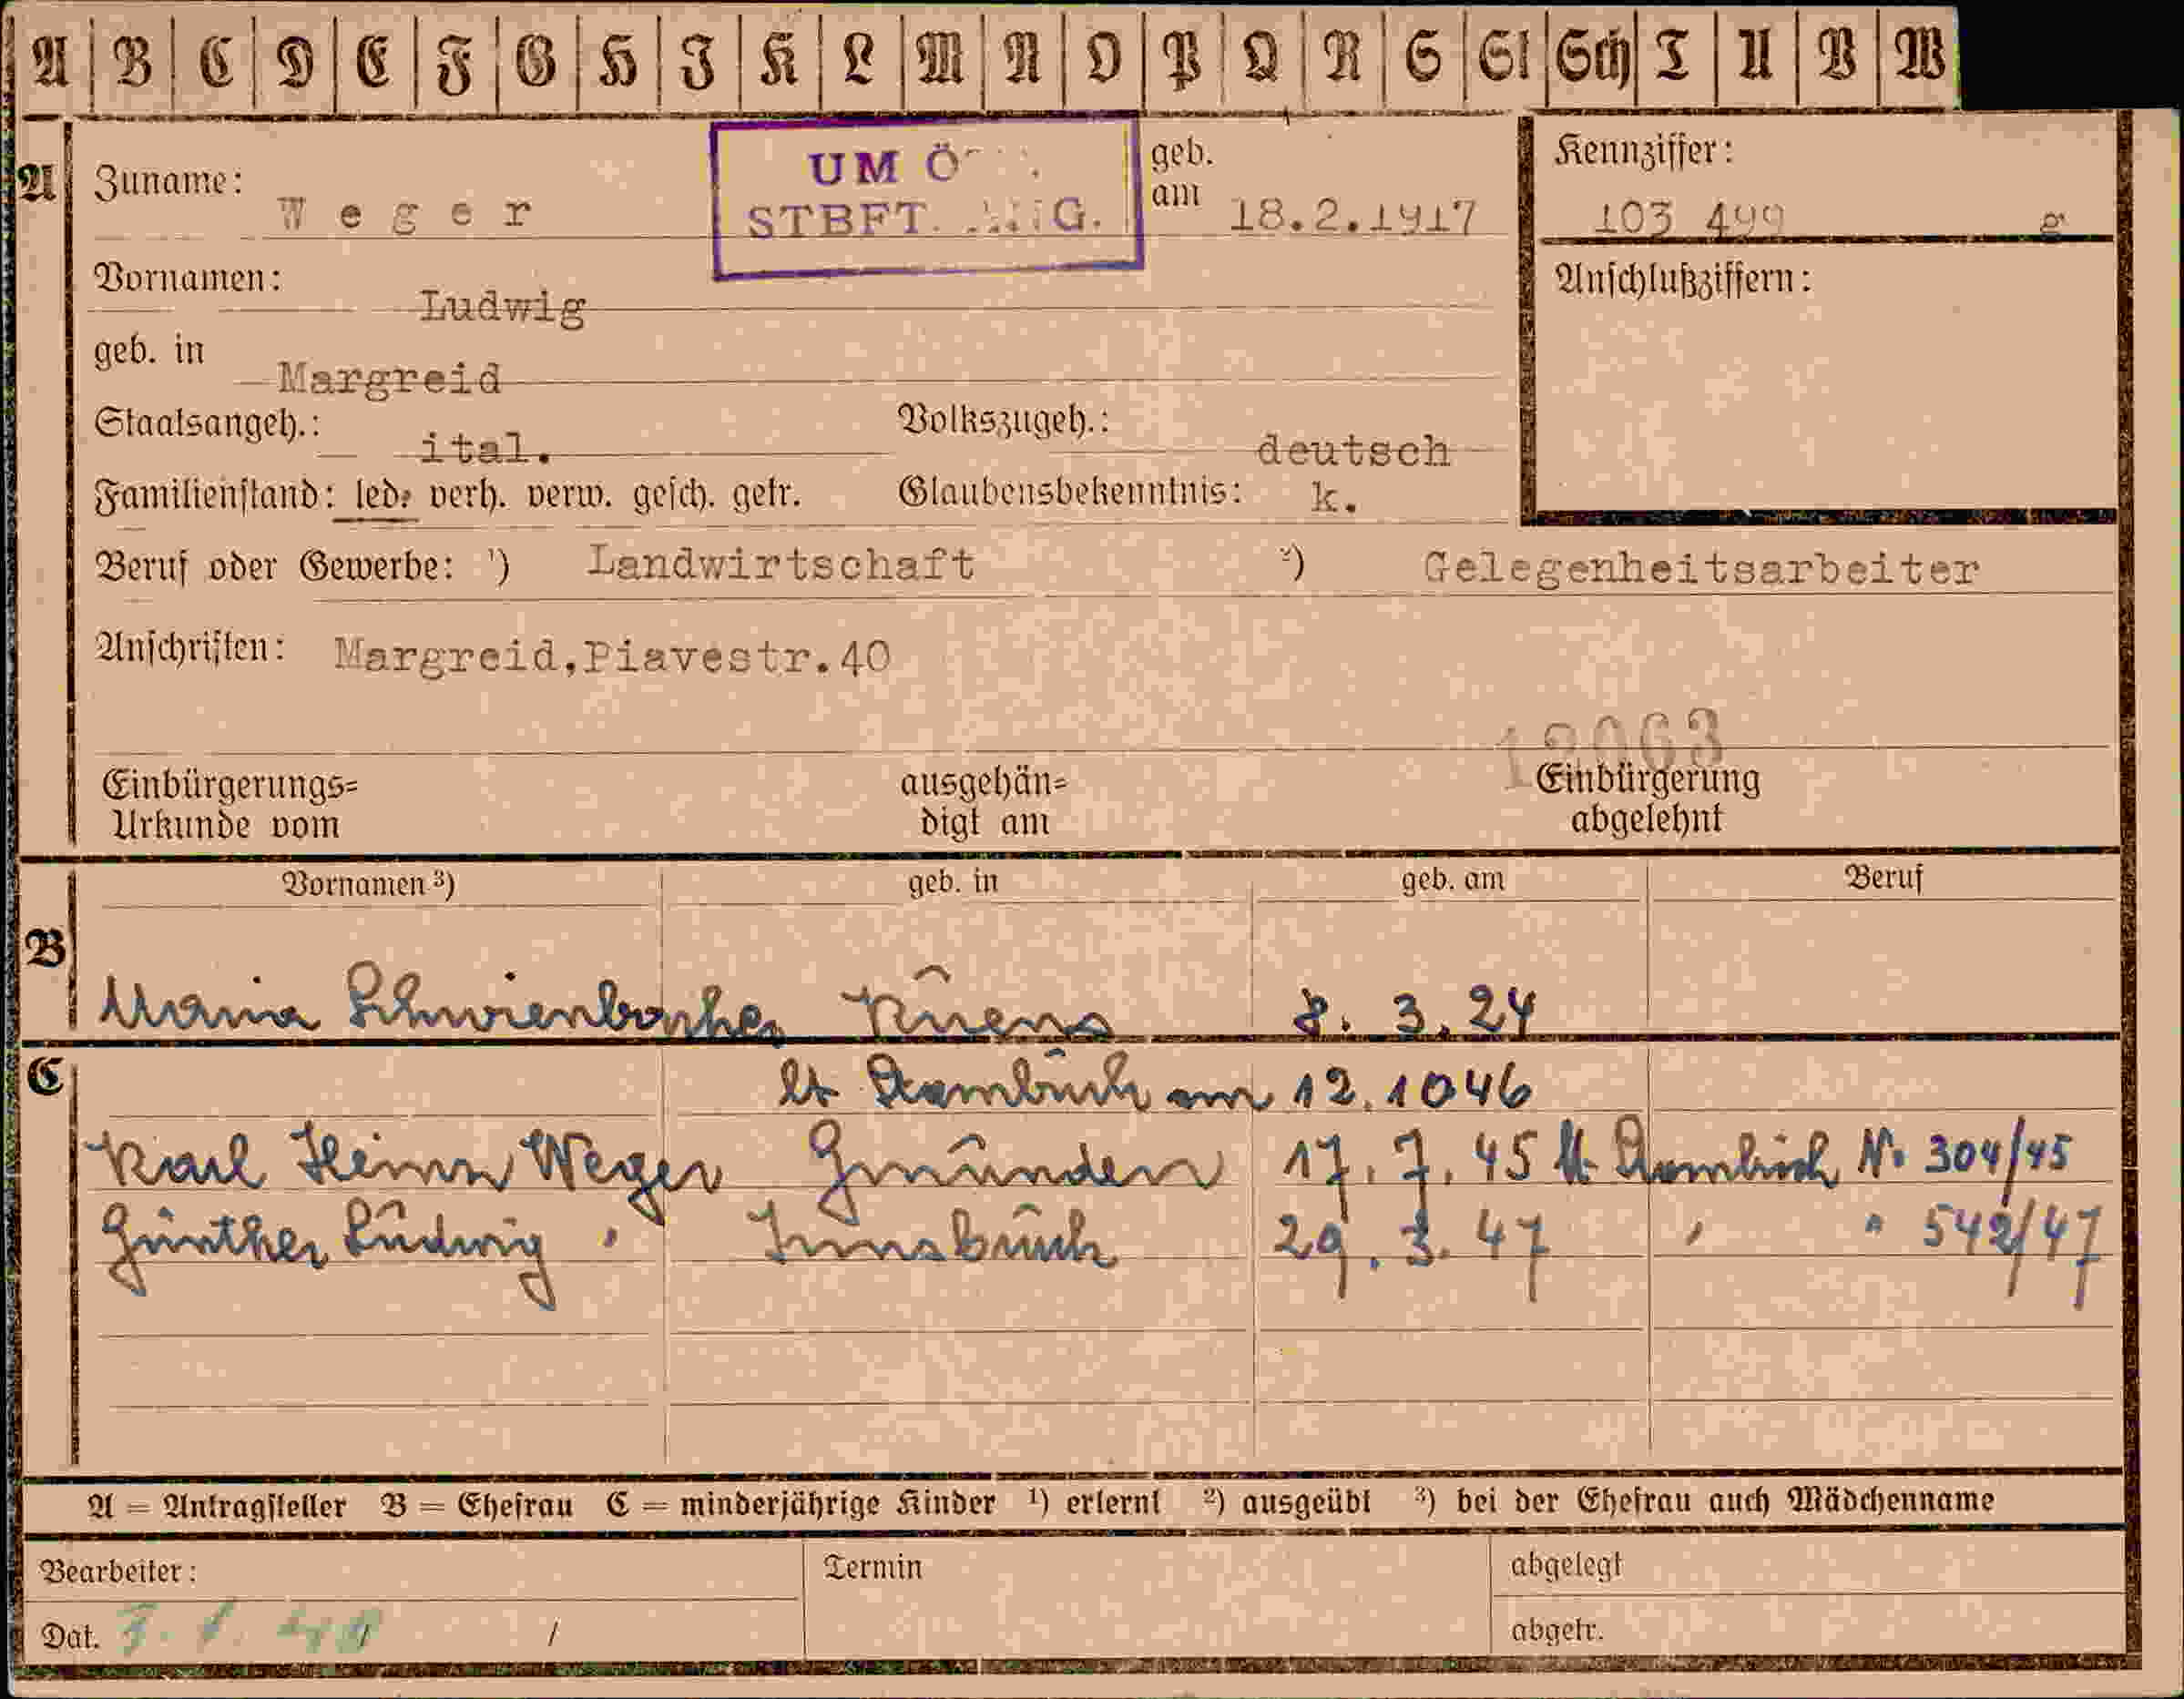 A B C D E F G H I K L M N O P Q R S St Sch T U V W
A
Zuname: Weger
UM Ö
STBFT. G.
geb. am 18.2.1917
Kennziffer:
103 499 g
Vornamen: Ludwig
Anschlußziffern:
geb. in Margreid
Staatsangeh.: ital. Volkszugeh.: deutsch
Familienstand: led. verh. verw. gesch. getr. Glaubensbekenntnis: k.
Beruf oder Gewerbe: ¹) Landwirtschaft ²) Gelegenheitsarbeiter
Anschriften: Margreid,Piavestr.40
12063
Einbürgerungs= ausgehän= Einbürgerung
Urkunde vom digt am abgelehnt
Vornamen ³) geb. in geb. am Beruf
B
Maria Schwienbacher Kuens 8. 3. 24
C
lt Stambuch am 12.1046
Karl Heinz Weger Gmunden 17. 7. 45 lt Stambuch Nr 304/45
Günther Ludwig " Innsbruck 29. 3. 47 " " 542/47
A = Antragsteller B = Ehefrau C = minderjährige Kinder ¹) erlernt ²) ausgeübt ³) bei der Ehefrau auch Mädchenname
Bearbeiter: Termin abgelegt
Dat. / / abgetr.